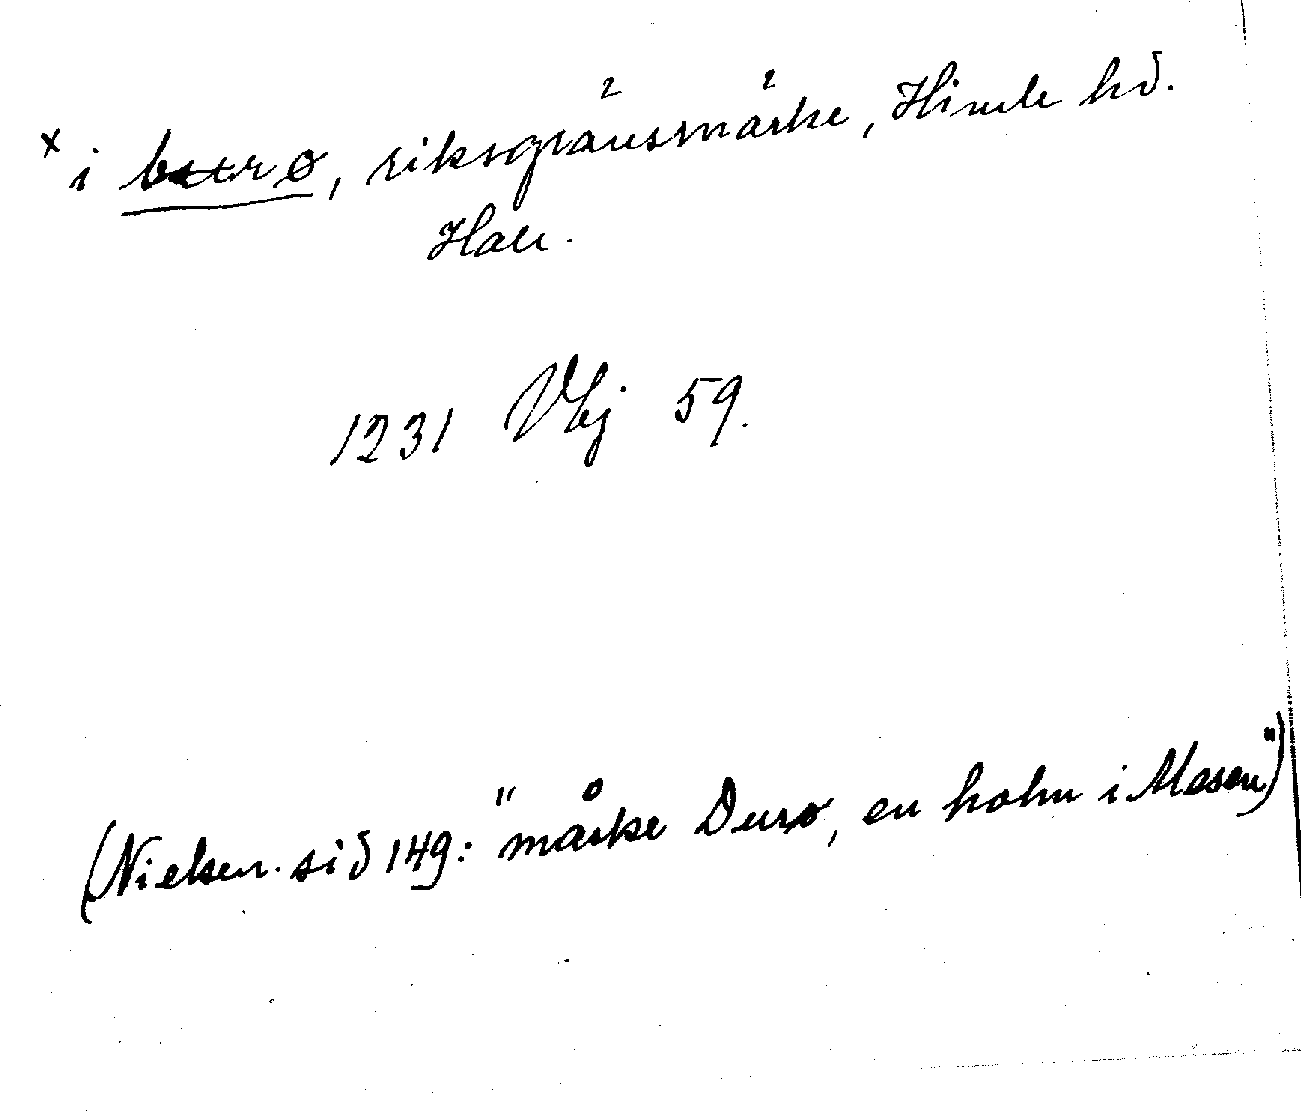 x i burø, riksgränsmärke, Himle hd.
Hall.
1231 Vbj 59.
(Nielsen. sid 149: "måske Durø, en holm i Åsen")